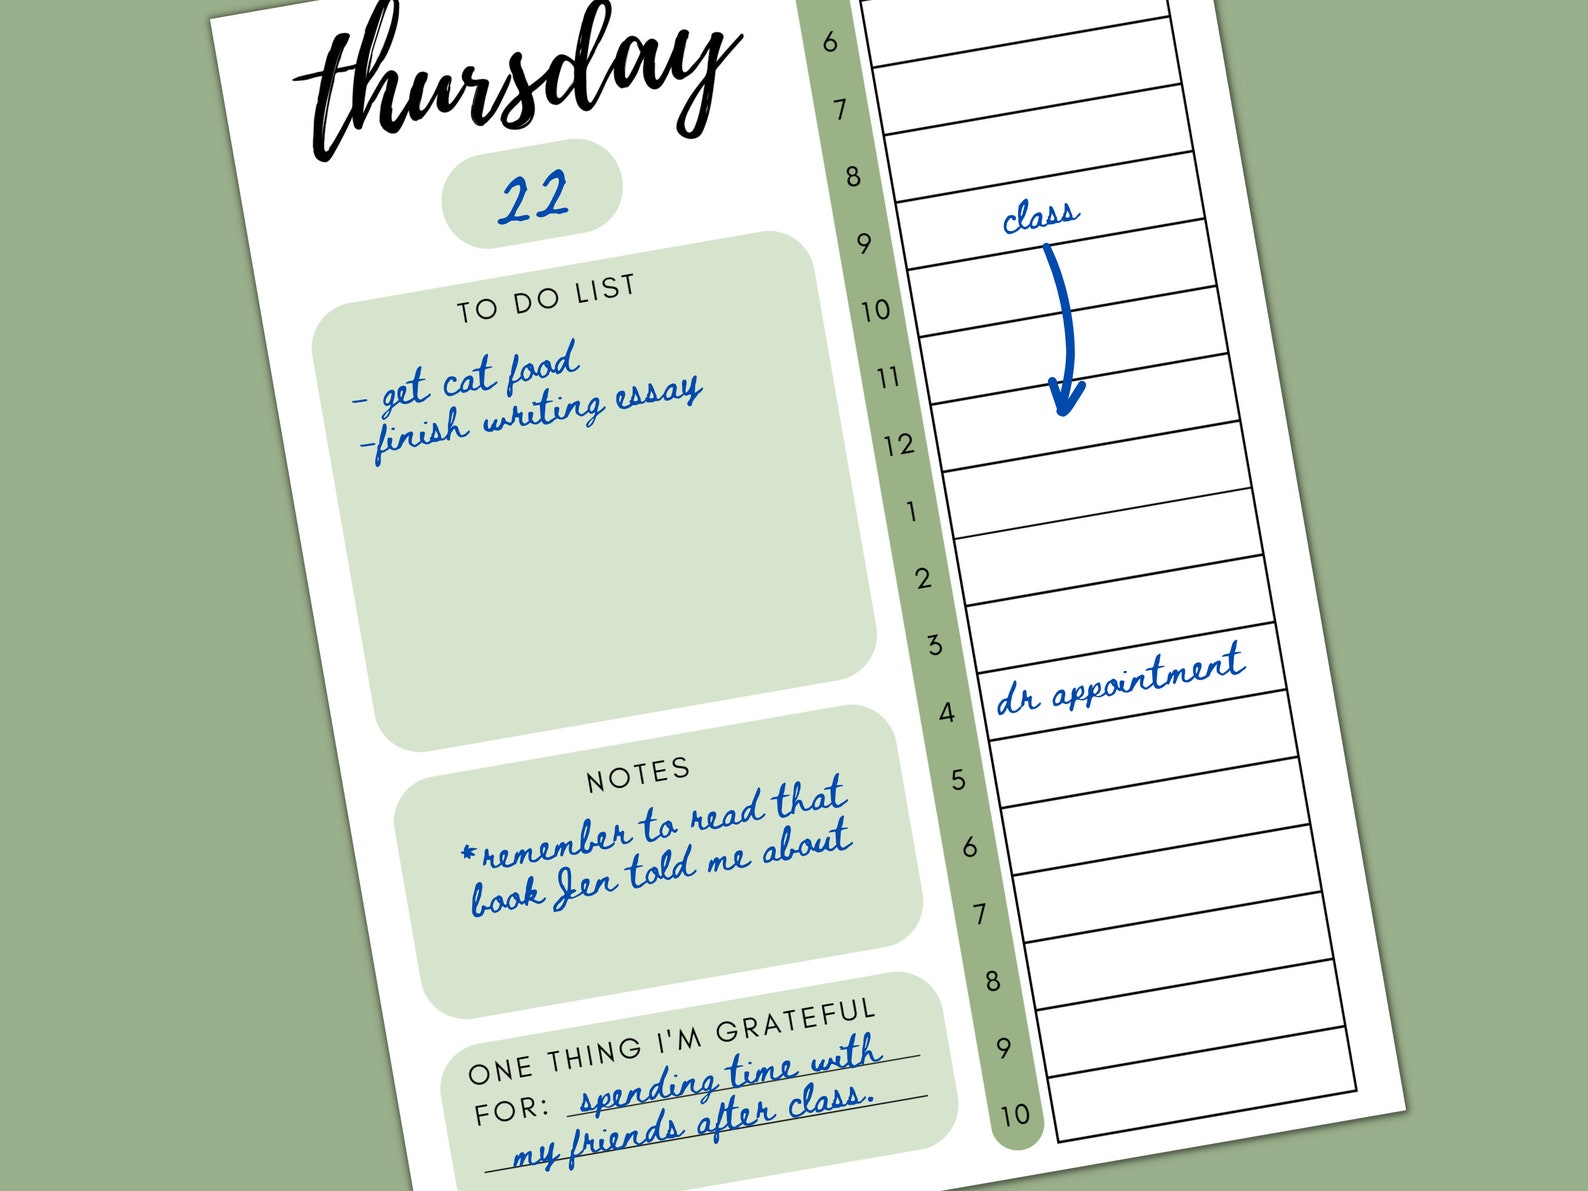 thursday
22
TO DO LIST
- get cat food
-finish writing essay
NOTES
*remember to read that
book Jen told me about
ONE THING I'M GRATEFUL
FOR: spending time with
my friends after class.
6
7
8
9 class
10
11
12
1
2
3
4 dr appointment
5
6
7
8
9
10